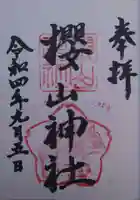 奉拝
櫻山神社
令和四年九月五日